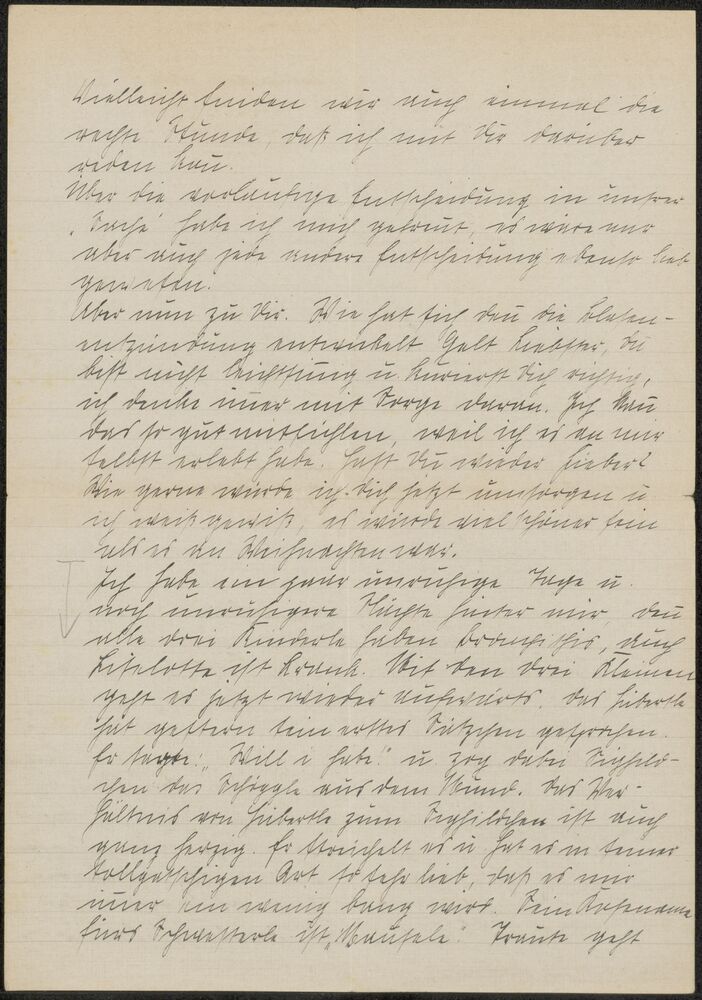 Vielleicht finden wir auch einmal die
rechte Stunde, daß ich mit Dir darüber
reden kann.
Über die vorläufige Entscheidung in unsrer
„Sache“ habe ich mich gefreut, es wäre mir
aber auch jede andere Entscheidung ebenso lieb
gewesen.
Aber nun zu Dir. Wie hat sich den̄ die Blasen-
entzündung entwickelt? Gelt Liebster, Du
bist nicht leichtsinnig u. kurierst Dich richtig,
ich denke im̄er mit Sorge daran. Ich kan̄
das so gut mitfühlen, weil ich es an mir
selbst erlebt habe. Hast Du wieder Fieber?
Wie gerne würde ich Dich jetzt umsorgen u.
ich weiß gewiß, es würde viel schöner sein
als es an Weihnachten war.
Ich habe ein paar unruhige Tage u.
noch unruhigere Nächte hinter mir, den̄
alle drei Kinderle haben Bronchitis, auch
Liselotte ist krank. Mit den drei Kleinen
geht es jetzt wieder aufwärts. Das Hubertle
hat gestern sein erstes Sätzchen gesprochen.
Er sagte: „Will i habe!“ u. zog dabei Sighild-
chen das Schnggele aus dem Mund. Das Ver-
hältnis von Hubertle zum Sighildchen ist auch
ganz herzig. Er streichelt es u. hat es in seiner
tollpatschigen Art so sehr lieb, daß es mir
im̄er ein wenig bang wird. Sein Kosename
fürs Schwesterle ist „Mausele.“ Traute geht